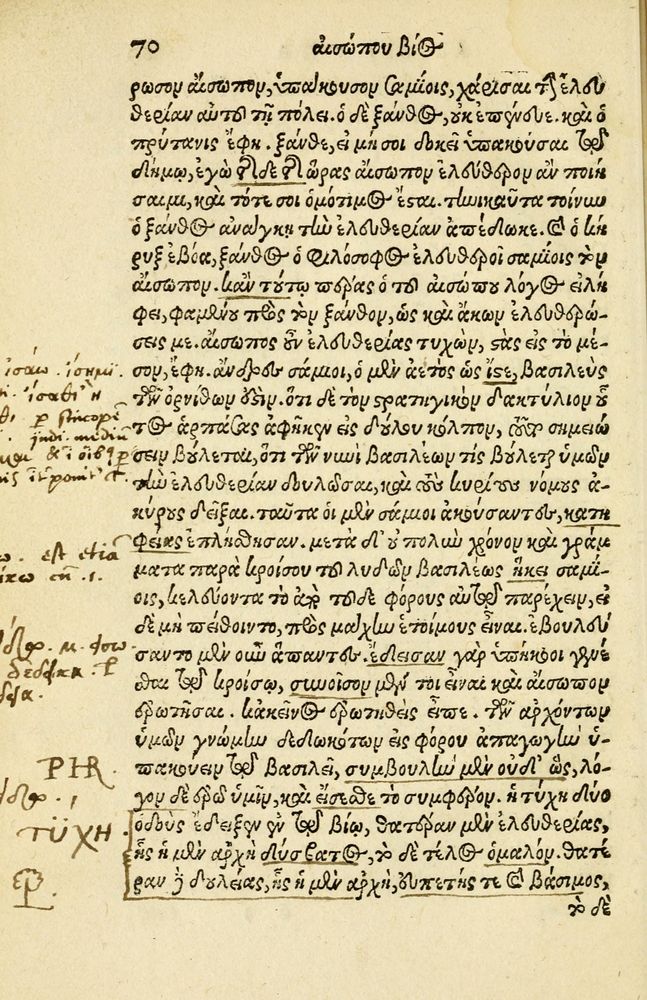 70 αἰσώπου βίος
ρωσον αἴσωπον, ὑπάκουσον σαμίοις, χάρισαι τὴν ἐλευ
θερίαν αὐτοῦ τῇ πόλει. ὁ δὲ ξάνθος, οὐκ ἐπένευε. καὶ ὁ
πρύτανις ἔφη. ξάνθε, εἰ μή σοι δοκεῖ ὑπακοῦσαι τῷ
δήμῳ, ἐγὼ τῆσδε τῆς ὥρας αἴσωπον ἐλεύθερον ἂν ποιή
σαιμι, καὶ τότε σοι ὁμότιμος ἔσται. τηνικαῦτα τοίνυν
ὁ ξάνθος ἀνάγκῃ τὴν ἐλευθερίαν ἀπέδωκε. καὶ ὁ κή
ρυξ ἐβόα, ξάνθος ὁ φιλόσοφος ἐλευθεροῖ σαμίοις τὸν
αἴσωπον. κἀν τούτῳ πέρας ὁ τοῦ αἰσώπου λόγος εἰλή
φει, φαμένου πρὸς τὸν ξάνθον, ὡς καὶ ἄκων ἐλευθερώ-
σεις με. αἴσωπος οὖν ἐλευθερίας τυχών, στὰς εἰς τὸ μέ-
σον, ἔφη. ἄνδρες σάμιοι, ὁ μὲν ἀετὸς ὡς ἴστε, βασιλεὺς
τῶν ὀρνίθων ἐστίν. ὅτι δὲ τὸν στρατηγικὸν δακτύλιον οὗ
τος ἁρπάσας ἀφῆκεν εἰς δούλου κόλπον, τοῦτο σημειώ
σειν βούλεται, ὅτι τῶν νυνὶ βασιλέων τὶς βούλεται ὑμῶν
τὴν ἐλευθερίαν δουλῶσαι, καὶ τοὺς κυρίους νόμους ἀ-
κύρους δεῖξαι. ταῦτα οἱ μὲν σάμιοι ἀκούσαντες, κατη
φείας ἐπλήσθησαν. μετὰ δ' οὐ πολὺν χρόνον καὶ γράμ
ματα παρὰ κροίσου τοῦ λυδῶν βασιλέως ἧκει σαμί-
οις, κελεύοντα τὸ ἀπὸ τοῦδε φόρους αὐτῷ παρέχειν, εἰ
δὲ μὴ πείθοιντο, πρὸς μάχην ἑτοίμους εἶναι. ἐβουλεύ
σαντο μὲν οὖν ἅπαντες. ἔδεισαν γὰρ ὑπήκοοι γενέ
σθαι τῷ κροίσῳ, συνοῖσον μέν τοι εἶναι καὶ αἴσωπον
ἐρωτῆσαι. κἀκεῖνος ἐρωτηθεὶς εἶπε. τῶν ἀρχόντων
ὑμῶν γνώμην δεδωκότων εἰς φόρου ἀπαγωγὴν ὑ-
πακούειν τῷ βασιλεῖ, συμβουλὴν μὲν οὐδ' ὣς, λό-
γον δὲ ἐρῶ ὑμῖν, καὶ εἴσεσθε τὸ συμφέρον. ἡ τύχη δύο
ὁδοὺς ἔδειξεν ἐν τῷ βίῳ, θατέραν μὲν ἐλευθερίας,
ἧς ἡ μὲν ἀρχὴ δύσβατος, τὸ δὲ τέλος ὁμαλόν. θατέ
ραν δὲ δουλείας, ἧς ἡ μὲν ἀρχή, εὐπετής τε καὶ βάσιμος,
τὸ δὲ
ΤΫΧΗ